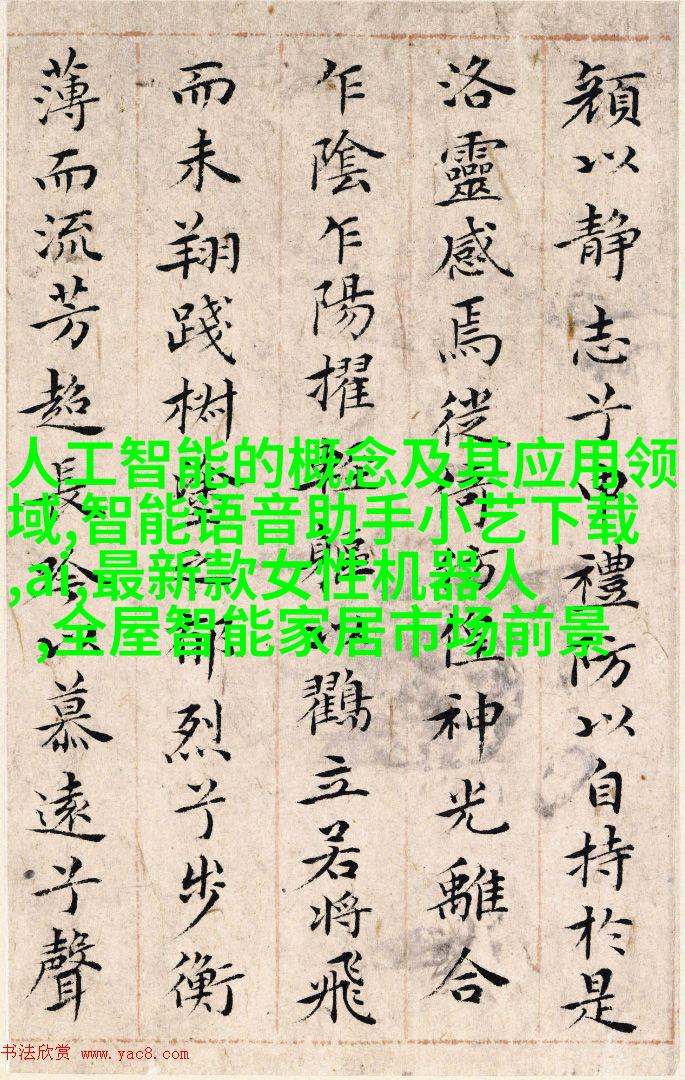 顔以静志兮申禮防以自持於是
洛靈感焉徙倚彷徨神光離合
乍陰乍陽擢輕軀以鸖立若將飛
而未翔踐椒塗之郁烈兮步衡
薄而流芳超長吟以慕遠兮聲
人工智能的概念及其应用领
域,智能语音助手小艺下载
,ai,最新款女性机器人
,全屋智能家居市场前景
书法欣赏 www.yac8.com